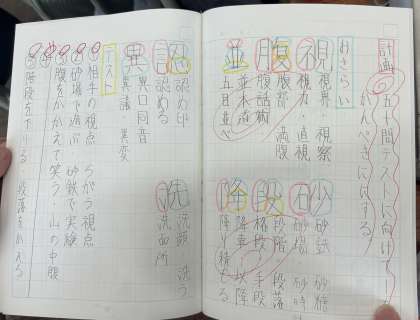 計画
五十問テストに向けて
かんぺきにする
おさらい
視 視界・視察
視力・直視
腹 腹部・満腹
腹話術
並 並木道
五目並べ
砂 砂鉄 砂糖
砂時
段 段階 段落
格段 手段
降 降車
降り積もる
異 異口同音
異議・異変
認 認め印
認める
洗 洗顔 洗う
洗面所
テスト
①相手の視点 ちがう視点
②砂場で遊ぶ・砂鉄で実験
③腹をかかえて笑う・山の中腹
④
⑤階段を下りる・段落をかえる